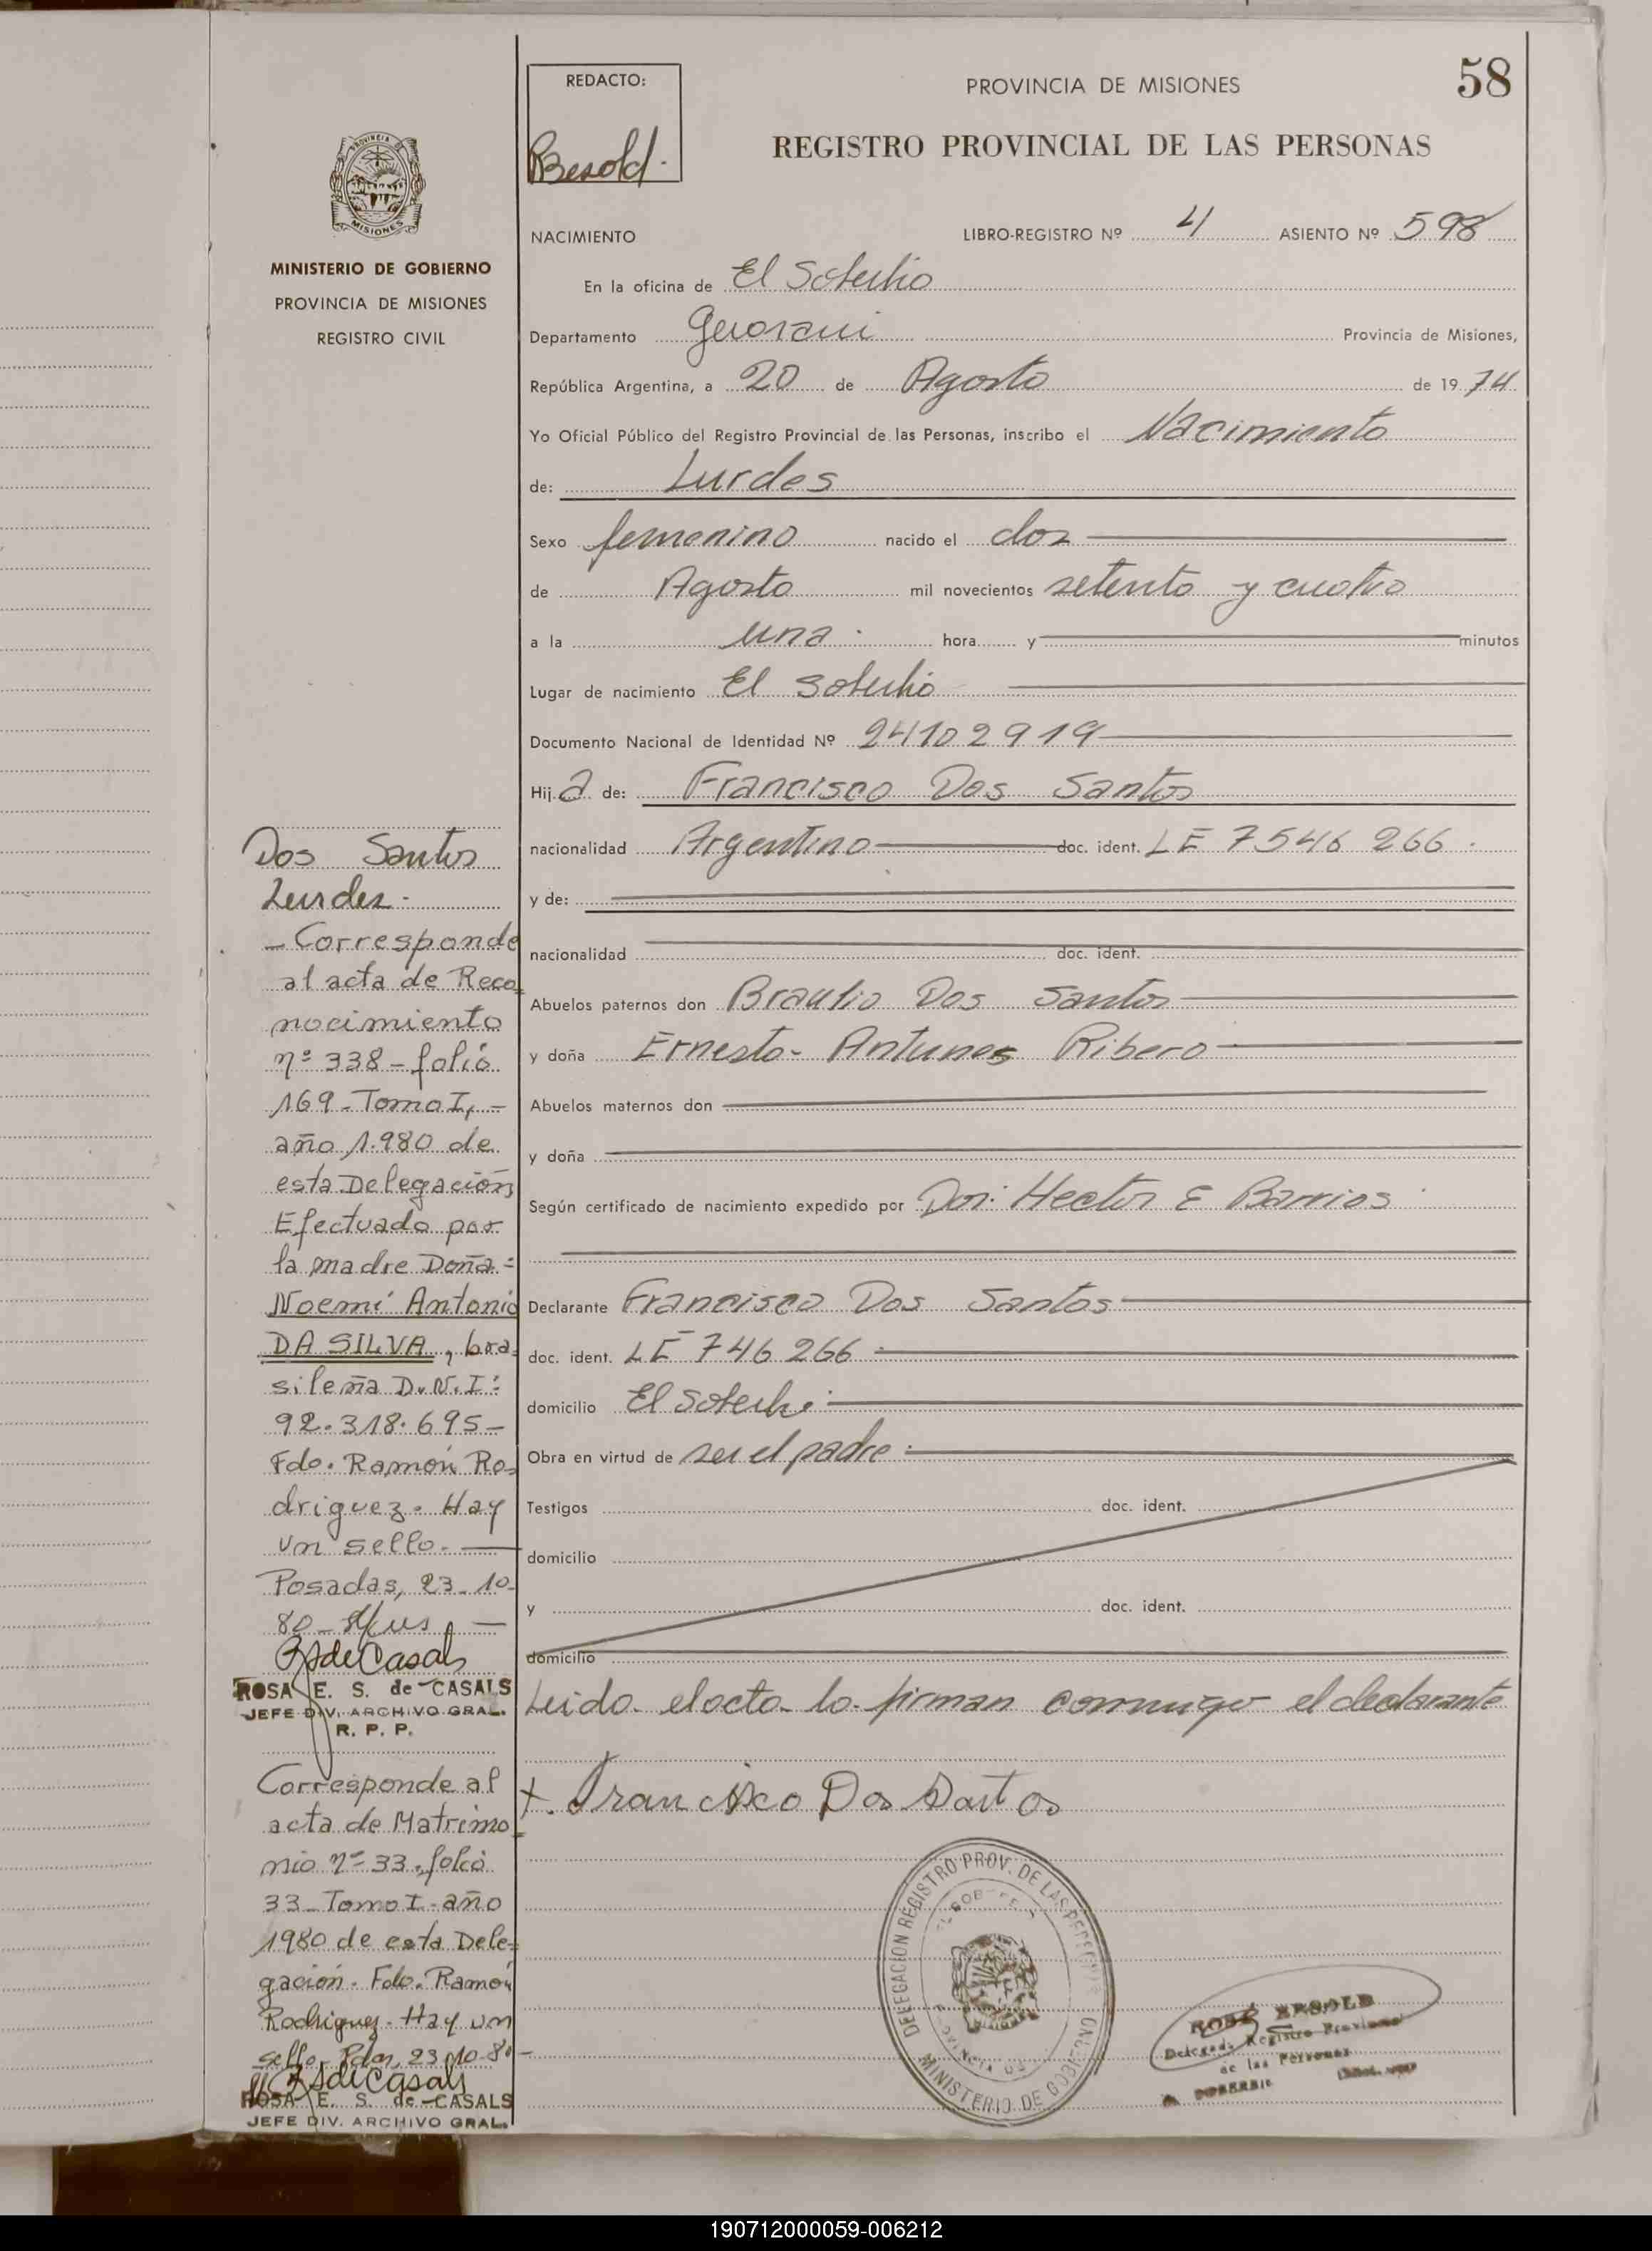 58
REDACTO:
Besold.
PROVINCIA DE MISIONES
REGISTRO PROVINCIAL DE LAS PERSONAS
MISIONES
MINISTERIO DE GOBIERNO
PROVINCIA DE MISIONES
REGISTRO CIVIL
NACIMIENTO LIBRO-REGISTRO Nº 4 ASIENTO Nº 598
En la oficina de El Soberbio
Departamento Guarani Provincia de Misiones,
República Argentina, a 20 de Agosto de 1974
Yo Oficial Público del Registro Provincial de las Personas, inscribo el Nacimiento
de: Lurdes
Sexo femenino nacido el dos
de Agosto mil novecientos setenta y cuatro
a la una. hora y minutos
Lugar de nacimiento El Soberbio
Documento Nacional de Identidad Nº 24102919
Hija de: Francisco Dos Santos
nacionalidad Argentino doc. ident. LE 7546 266.
y de:
nacionalidad doc. ident.
Abuelos paternos don Braulio Dos Santos
y doña Ernesta Antunes Ribero
Abuelos maternos don
y doña
Según certificado de nacimiento expedido por Dor: Hector E Barrios
Declarante Francisco Dos Santos
doc. ident. LE 746 266
domicilio El Soberbio
Obra en virtud de ser el padre.
Testigos doc. ident.
domicilio
y doc. ident.
domicilio
Leido el acta lo firman conmigo el declarante
x. Francisco Dos Santos
Dos Santos
Lurdes.
- Corresponde
al acta de Reco
nocimiento
nº 338 - folio
169 - Tomo I, -
año 1.980 de
esta Delegación
Efectuado por
la madre Doña:
Noemí Antonia
DA SILVA, bra-
sileña D.N.I:
92.318.695-
Fdo. Ramón Ro-
driguez. Hay
un sello.-
Posadas, 23-10-
80-
RSdeCasals
ROSA E. S. de CASALS
JEFE DIV. ARCHIVO GRAL.
R. P. P.
Corresponde al
acta de Matrimo
nio nº 33, folio
33 - Tomo I - año
1980 de esta Dele-
gación. Fdo. Ramón
Rodriguez. Hay un
sello. Pdas, 23-10-80-
RSdeCasals
ROSA E. S. de CASALS
JEFE DIV. ARCHIVO GRAL.
DELEGACION REGISTRO PROV. DE LAS PERSONAS
MINISTERIO DE GOBIERNO
BESOLD
Delegado Registro Provincial
de las Personas
190712000059-006212